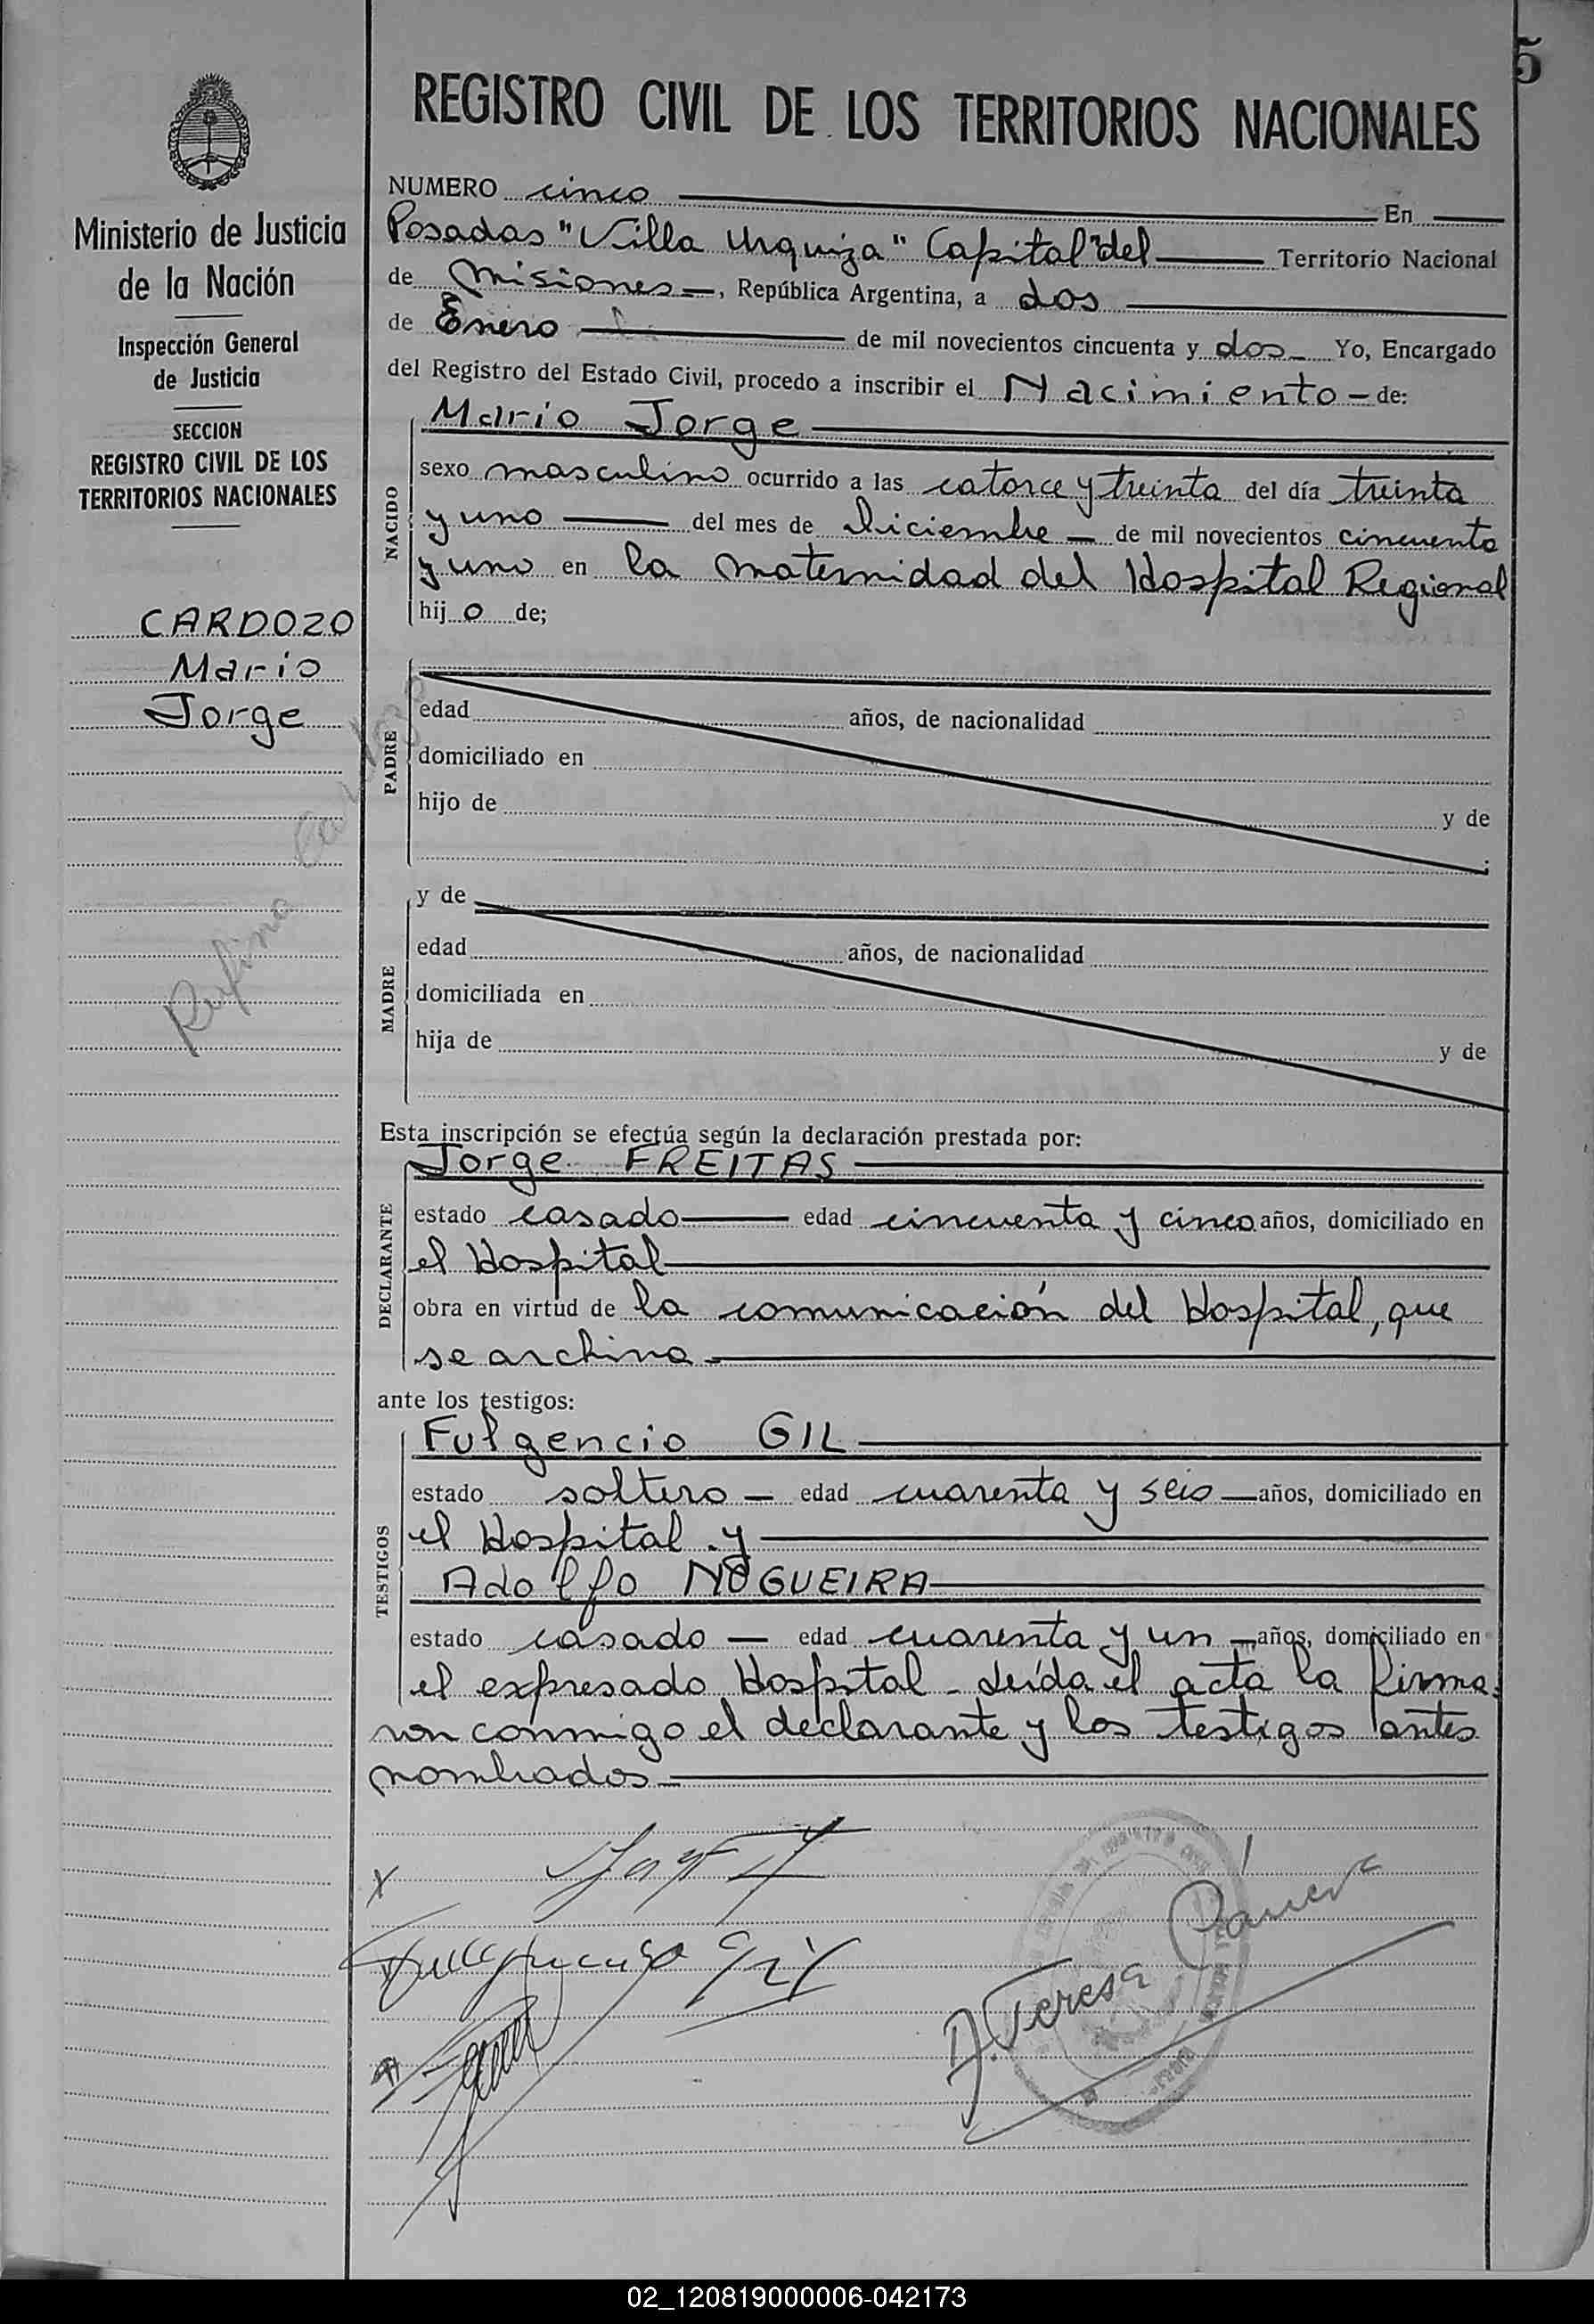 5
REGISTRO CIVIL DE LOS TERRITORIOS NACIONALES
Ministerio de Justicia
de la Nación
Inspección General
de Justicia
SECCION
REGISTRO CIVIL DE LOS
TERRITORIOS NACIONALES
CARDOZO
Mario
Jorge
Rufino
NUMERO cinco En
Posadas "Villa Urquiza" Capital del Territorio Nacional
de Misiones, República Argentina, a dos
de Enero de mil novecientos cincuenta y dos Yo, Encargado
del Registro del Estado Civil, procedo a inscribir el Nacimiento de:
NACIDO
Mario Jorge
sexo masculino ocurrido a las catorce y treinta del día treinta
y uno del mes de Diciembre de mil novecientos cincuenta
y uno en la maternidad del Hospital Regional
hijo de;
PADRE
edad años, de nacionalidad
domiciliado en
hijo de y de
;
MADRE
y de
edad años, de nacionalidad
domiciliada en
hija de y de
Esta inscripción se efectúa según la declaración prestada por:
DECLARANTE
Jorge FREITAS
estado casado edad cincuenta y cinco años, domiciliado en
el Hospital
obra en virtud de la comunicación del Hospital, que
se archiva
ante los testigos:
TESTIGOS
Fulgencio GIL
estado soltero edad cuarenta y seis años, domiciliado en
el Hospital y
Adolfo NOGUEIRA
estado casado edad cuarenta y un años, domiciliado en
el expresado Hospital - Leída el acta la firma-
ron conmigo el declarante y los testigos antes
nombrados
02_120819000006-042173